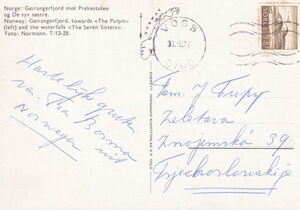 Norge: Geirangerfjord mot Prekestolen
og De syv søstre.
Norway: Geirangerfjord, towards «The Pulpit»
(left) and the waterfalls «The Seven Sisters».
Foto: Normann. T-13-28.
VOSS
5700
Hartelijke groeten
van
uit
Norwegen
Fam. J. Tupy
Zeletava
Znojemská 39
Tsjechoslowakije